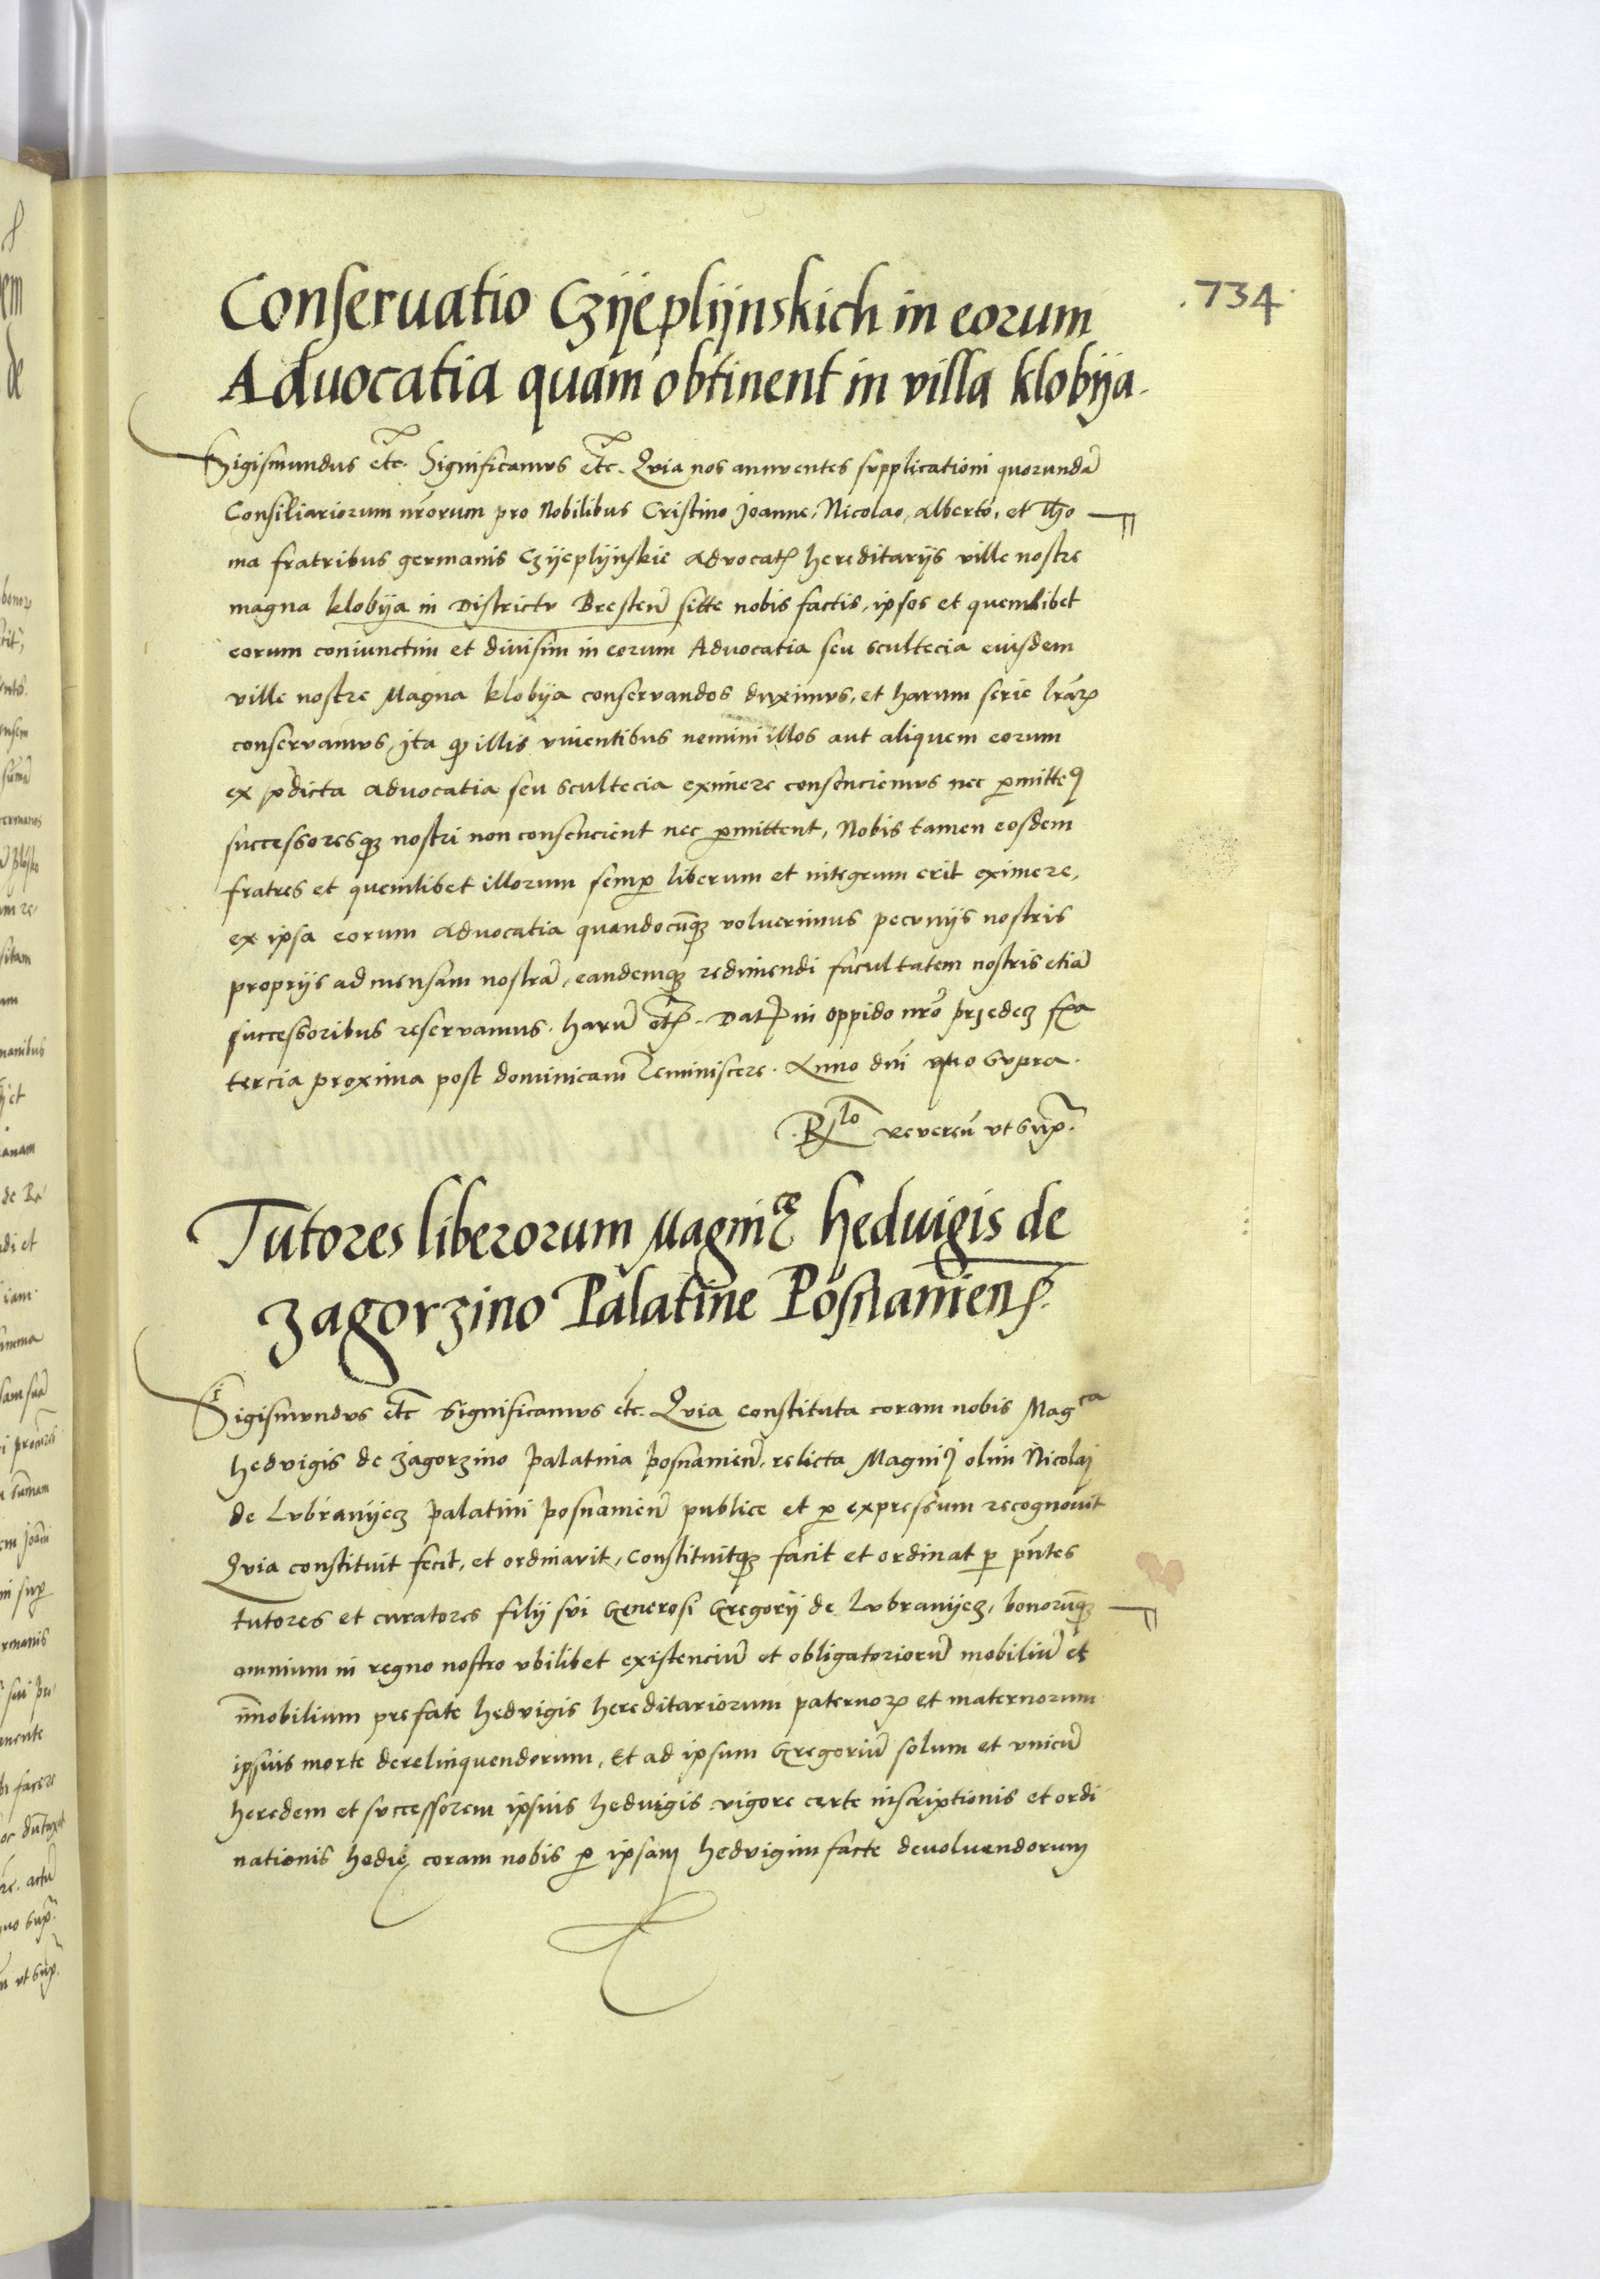 .734.
Conseruatio Czijeplijnskich in eorum
Aduocatia quam obtinent in villa klobija.
Sigismundus etc. Significamus etc. Quia nos annuentes supplicationi quorundā
Consiliariorum nr̄orum pro Nobilibus Cristino Joanne, Nicolao, Alberto, et Tho
ma fratribus germanis Czijeplijnskie advocatꝭ hereditarijs ville nostre
magna klobija in Districtu Bresten̄ sitte nobis factis, ipsos et quemlibet
eorum coniunctim et diuisim in eorum Aduocatia seu scultecia eiusdem
ville nostre Magna klobija conservandos duximus, et harum serie lr̄aꝝ
conservamus, Ita ꝙ illis viventibus nemini illos aut aliquem eorum
ex p̄dicta advocatia seu scultecia eximere consenciemus nec ꝑmitteꝰ
successoresqꝫ nostri non consencient nec ꝑmittent, Nobis tamen eosdem
fratres et quemlibet illorum semꝑ liberum et integrum erit eximere,
ex ipsa eorum advocatia quandocūqꝫ voluerimus pecunijs nostris
proprijs ad mensam nostrā, eandemqꝫ redimendi facultatem nostris etiā
successoribus reservamus. harū etꝭ. Datꝭ in oppido nr̄o Przedecz f̄ia
tercia proxima post dominicam Reminiscere. Anno dn̄i quo supra.
R̄lo Reveren̄ vt supꝫ.
Tutores liberorum Magnice hedvigis de
Zagorzino Palatine Posnamienꝭ.
Sigismundus etc Significamus etc. Quia constituta coram nobis Magca
hedvigis de Zagorzino palatina posnamien̄, relicta Magnij olim Nicolaj
de Lvbranyecz palatini posnamien̄ publice et ꝑ expressum recognovit
Quia constituit fecit, et ordinavit, constituitqꝫ facit et ordinat ꝑ pn̄tes
tutores et curatores filij sui Generosi Gregorij de Lvbranyecz, bonorūqꝫ
omnium in regno nostro vbilibet existenciū et obligatoriorū mobiliū et
īmobilium prefate hedvigis hereditariorum paternoꝝ et maternorum
ipsius morte derelinquendorum, Et ad ipsum Gregoriū solum et vnicū
heredem et successorem ipsius hedvigis vigore certe inscriptionis et ordi
nationis hodie coram nobis ꝑ ipsam hedvigim facte devoluendorum